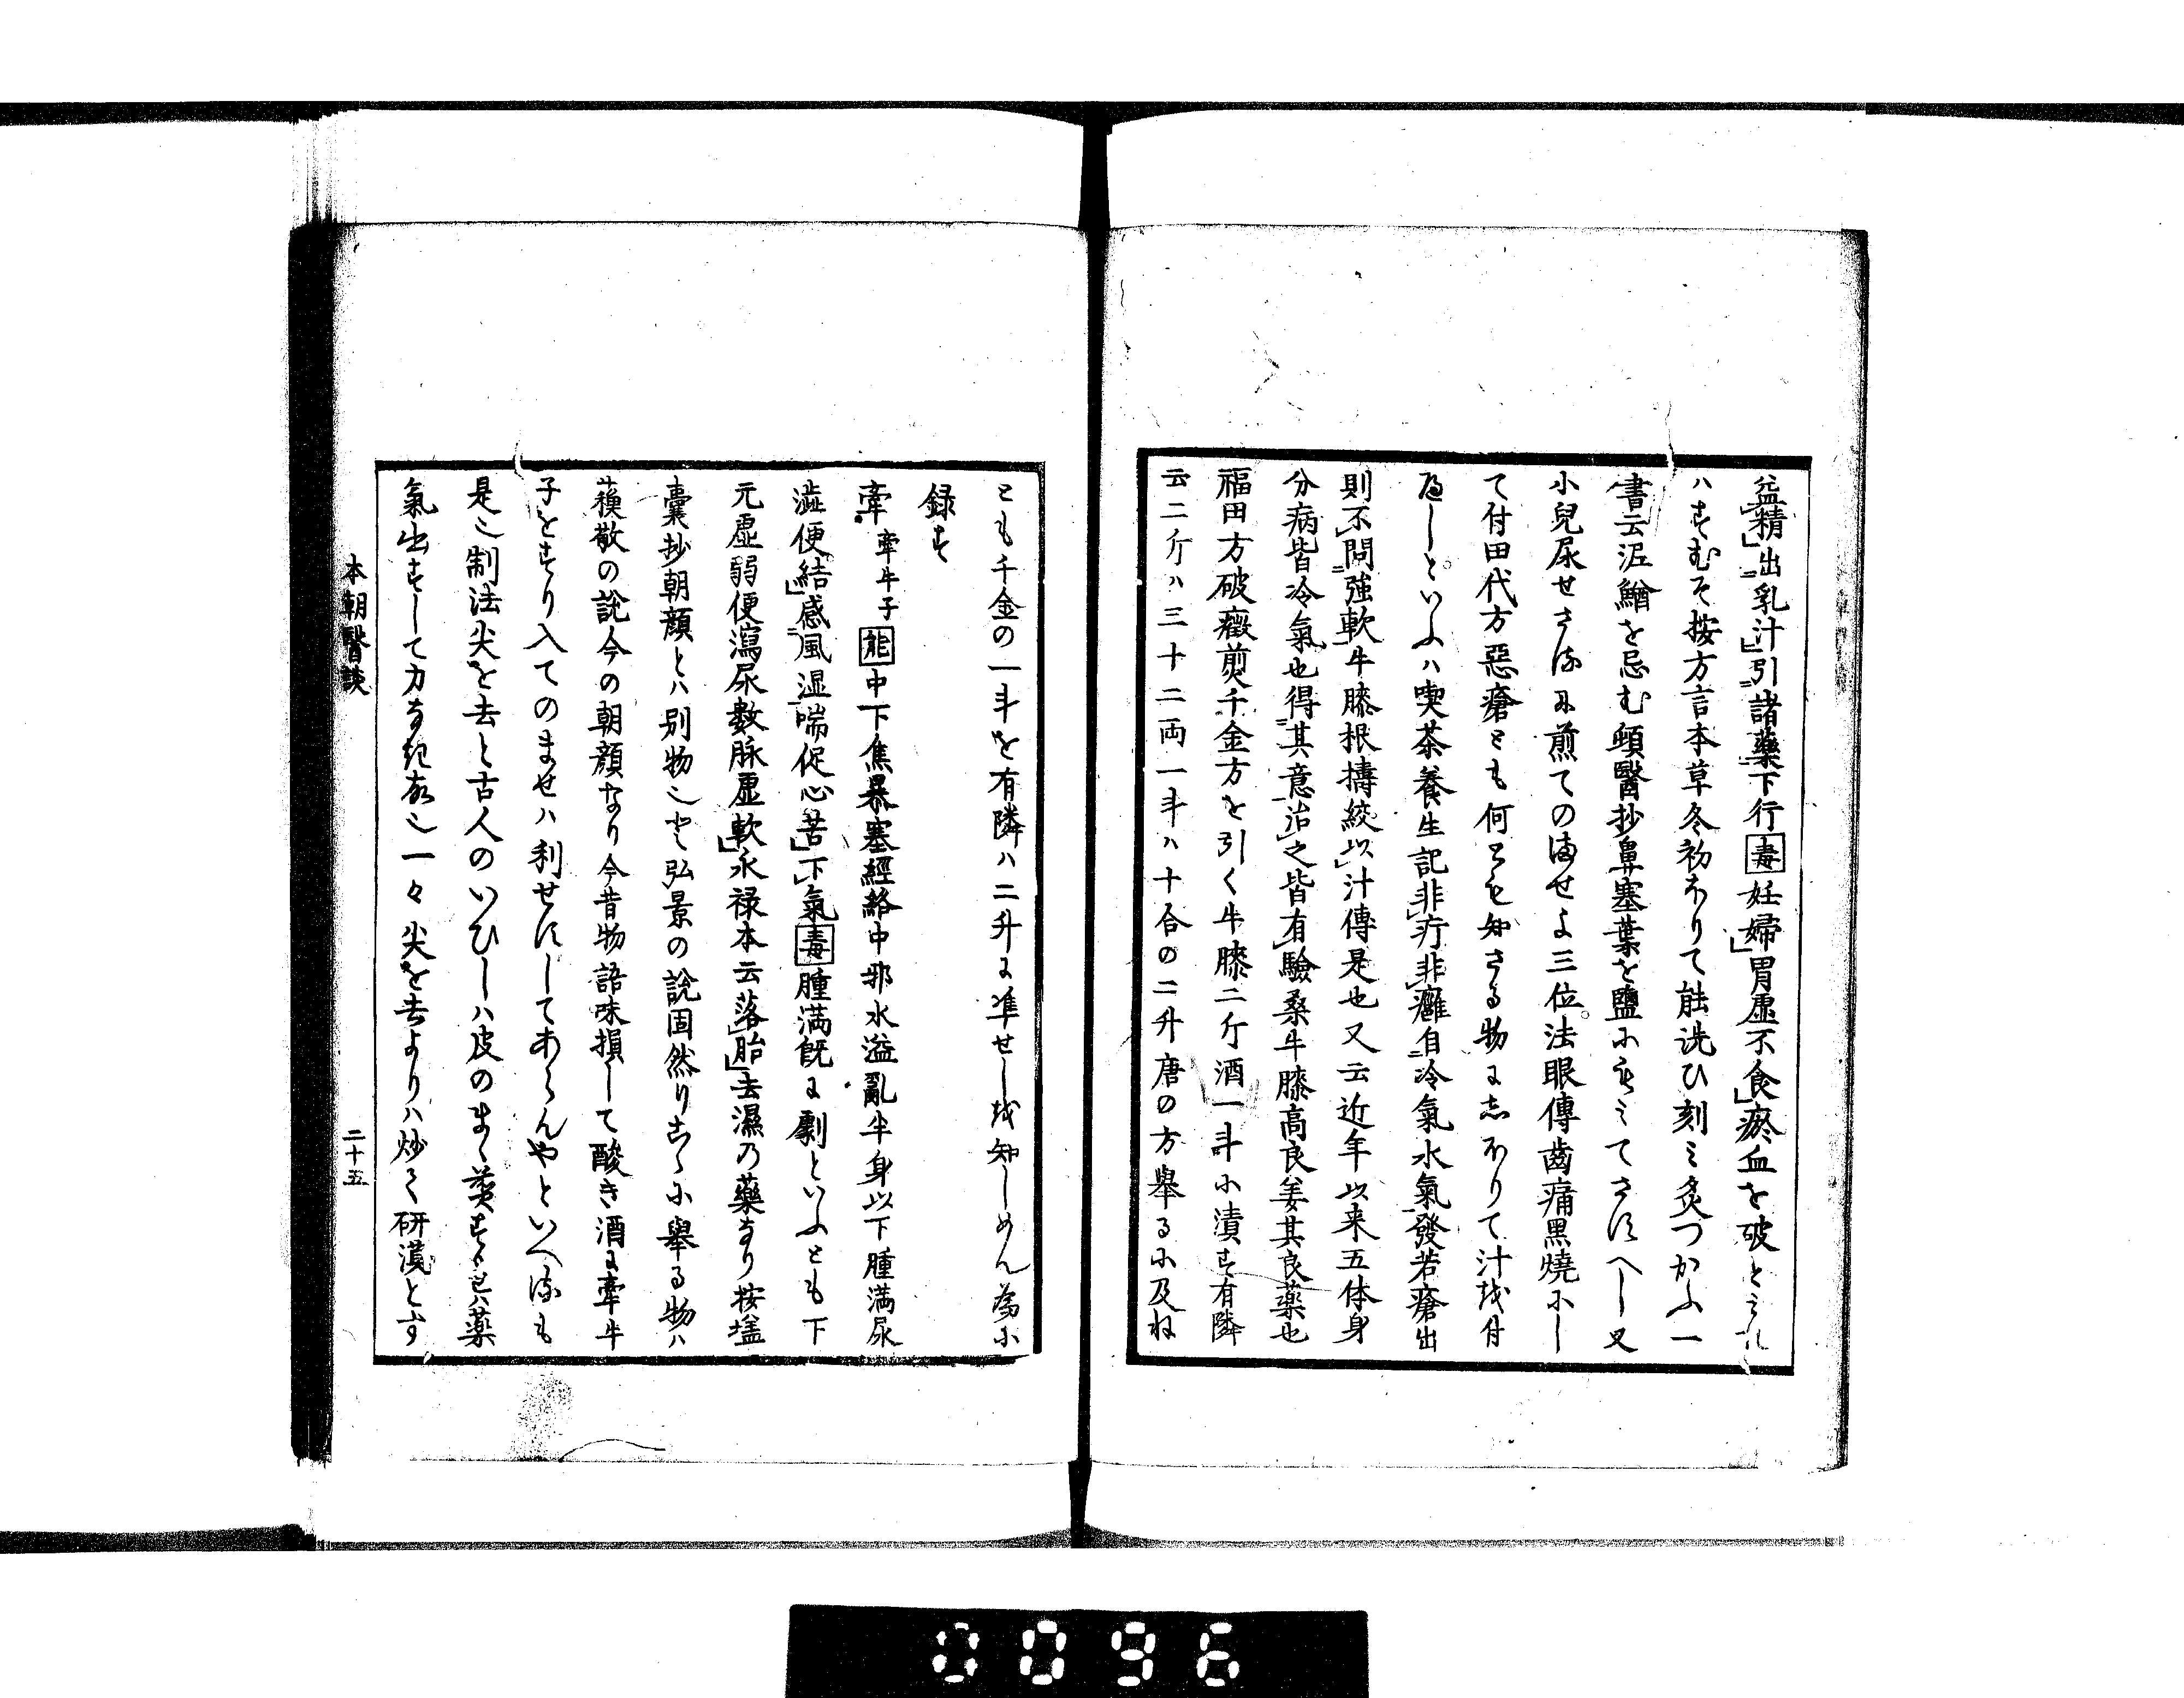 益精」出乳汁」引諸藥下行毒妊婦」胃虚不食」瘀血を破とミれ
ハすむそ按方言本草冬初ほりて能洗ひ刻ミ炙つかふ一
書云泥鰌を忌む頓醫抄鼻塞葉を鹽ニもミてさすへし又
小兒尿せさるに煎てのませよ三位法眼傳齒痛黒燒にし
て付田代方惡瘡とも何とも知さる物にしほりて汁を付
へしといふハ喫茶養生記非疔」非癰自冷氣水氣發若瘡出
則不問強軟牛膝根擣絞以汁傳是也又云近年以来五体身
分病皆冷氣也得其意治之皆有驗桑牛膝高良姜其良藥也
福田方破癥煎千金方を引く牛膝二斤酒一斗に漬す有隣
云二斤ハ三十二両一斗ハ十合の二升唐の方舉るに及ね
とも千金の一斗を有隣ハ二升に準せし越知しめん為に
録す
牽 牽牛子能中下焦暴塞經絡中邪水溢亂半身以下腫満尿
澁便結」感風湿喘促心苦」下氣毒腫満既に劇といふとも下
元虚弱便瀉尿數脉虚軟」永禄本云落胎」去濕乃藥なり按壒
囊抄朝顔とハ別物也と弘景の說固然り爰に舉る物ハ
蘓敬の說今の朝顔なり今昔物語味損して酸き酒に牽牛
子をすり入てのませハ利せすしてあらんやといへるも
是也制法尖を去と古人のいひしハ皮のまゝ煑すれハ藥
氣出すして力なき故也一々尖を去よりハ炒て研濆とす
本朝醫談
二十五
0096